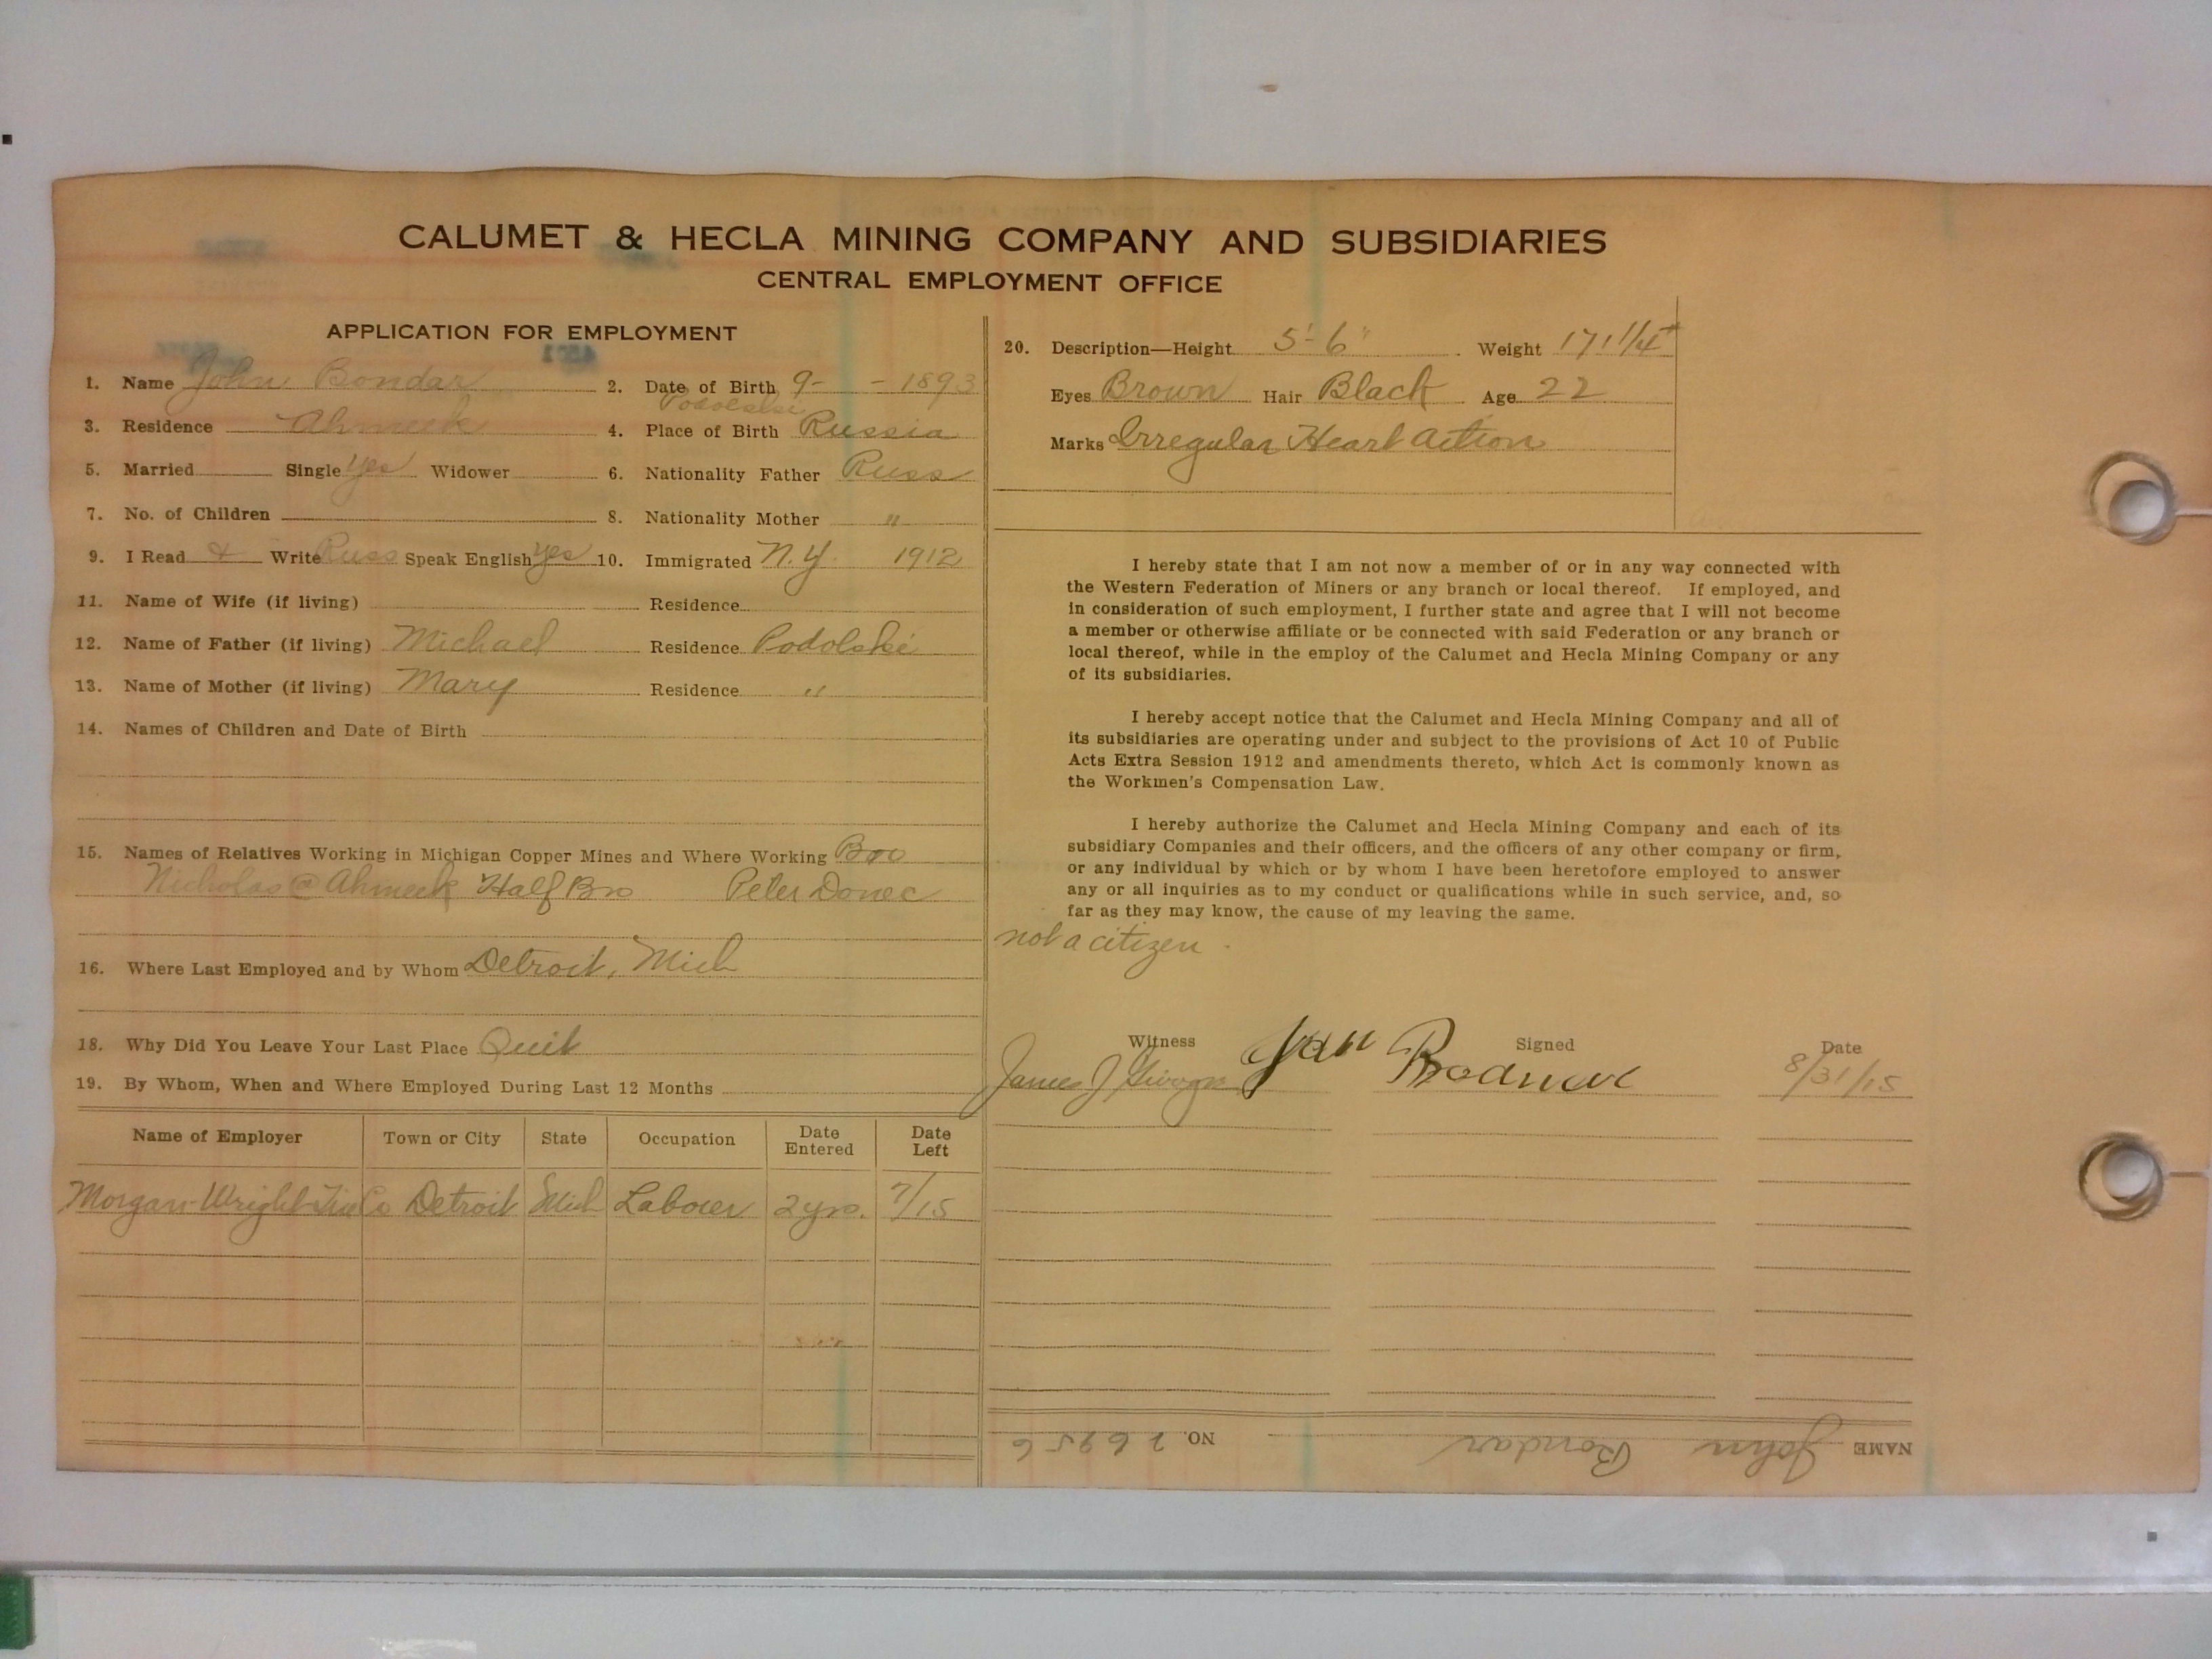 CALUMET & HECLA MINING COMPANY AND SUBSIDIARIES
CENTRAL EMPLOYMENT OFFICE
APPLICATION FOR EMPLOYMENT
1. Name John Bondar 2. Date of Birth 9- - 1893
Podolski
3. Residence Ahmeek 4. Place of Birth Russia
5. Married Single yes Widower 6. Nationality Father Russ
7. No. of Children 8. Nationality Mother "
9. I Read & Write Russ Speak English yes 10. Immigrated N.Y. 1912
11. Name of Wife (if living) Residence
12. Name of Father (if living) Michael Residence Podolski
13. Name of Mother (if living) Mary Residence "
14. Names of Children and Date of Birth
15. Names of Relatives Working in Michigan Copper Mines and Where Working Bro
Nicholas @ Ahmeek Half Bro Peter Donec
16. Where Last Employed and by Whom Detroit, Mich
18. Why Did You Leave Your Last Place Quit
19. By Whom, When and Where Employed During Last 12 Months
Name of Employer Town or City State Occupation Date Entered Date Left
Morgan-Wright Tire Co Detroit Mich Laborer 2 yrs. 7/15
20. Description—Height 5'-6" Weight 171 1/4
Eyes Brown Hair Black Age 22
Marks Irregular Heart action
I hereby state that I am not now a member of or in any way connected with
the Western Federation of Miners or any branch or local thereof. If employed, and
in consideration of such employment, I further state and agree that I will not become
a member or otherwise affiliate or be connected with said Federation or any branch or
local thereof, while in the employ of the Calumet and Hecla Mining Company or any
of its subsidiaries.
I hereby accept notice that the Calumet and Hecla Mining Company and all of
its subsidiaries are operating under and subject to the provisions of Act 10 of Public
Acts Extra Session 1912 and amendments thereto, which Act is commonly known as
the Workmen's Compensation Law.
I hereby authorize the Calumet and Hecla Mining Company and each of its
subsidiary Companies and their officers, and the officers of any other company or firm,
or any individual by which or by whom I have been heretofore employed to answer
any or all inquiries as to my conduct or qualifications while in such service, and, so
far as they may know, the cause of my leaving the same.
not a citizen.
Witness Signed Date
James J 8/31/15
NAME John Bondar NO. 26956